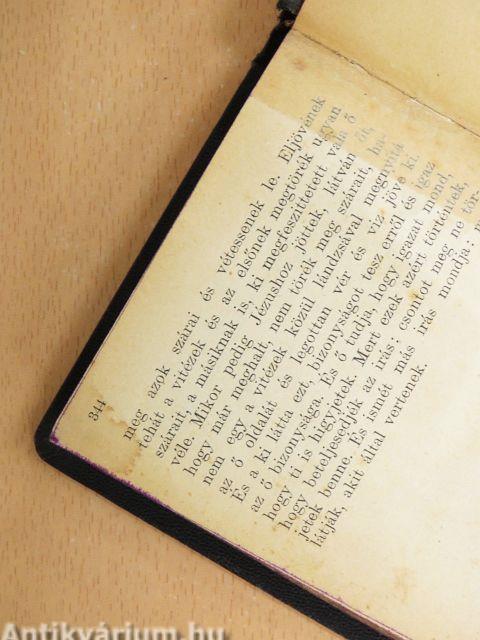 344
meg azok szárai és vétessenek le. Eljövének
tehát a vitézek és az elsőnek megtörék ugyan
szárait, a másiknak is, ki megfeszittetett vala ő
véle. Mikor pedig Jézushoz jöttek, látván őt,
hogy már meghalt, nem törék meg szárait, ha-
nem egy a vitézek közül lándzsával megnyitá
az ő oldalát és legottan vér és viz jöve ki
És a ki látta ezt, bizonyságot tesz erről és igaz
az ő bizonysága. És ő tudja, hogy igazat mond,
hogy ti is higyjetek. Mert ezek azért történtek,
hogy beteljesedjék az irás; csontot meg ne tör-
jetek benne. És ismét más irás mondja:
látják, akit által vertenek.
Antikvárium.hu